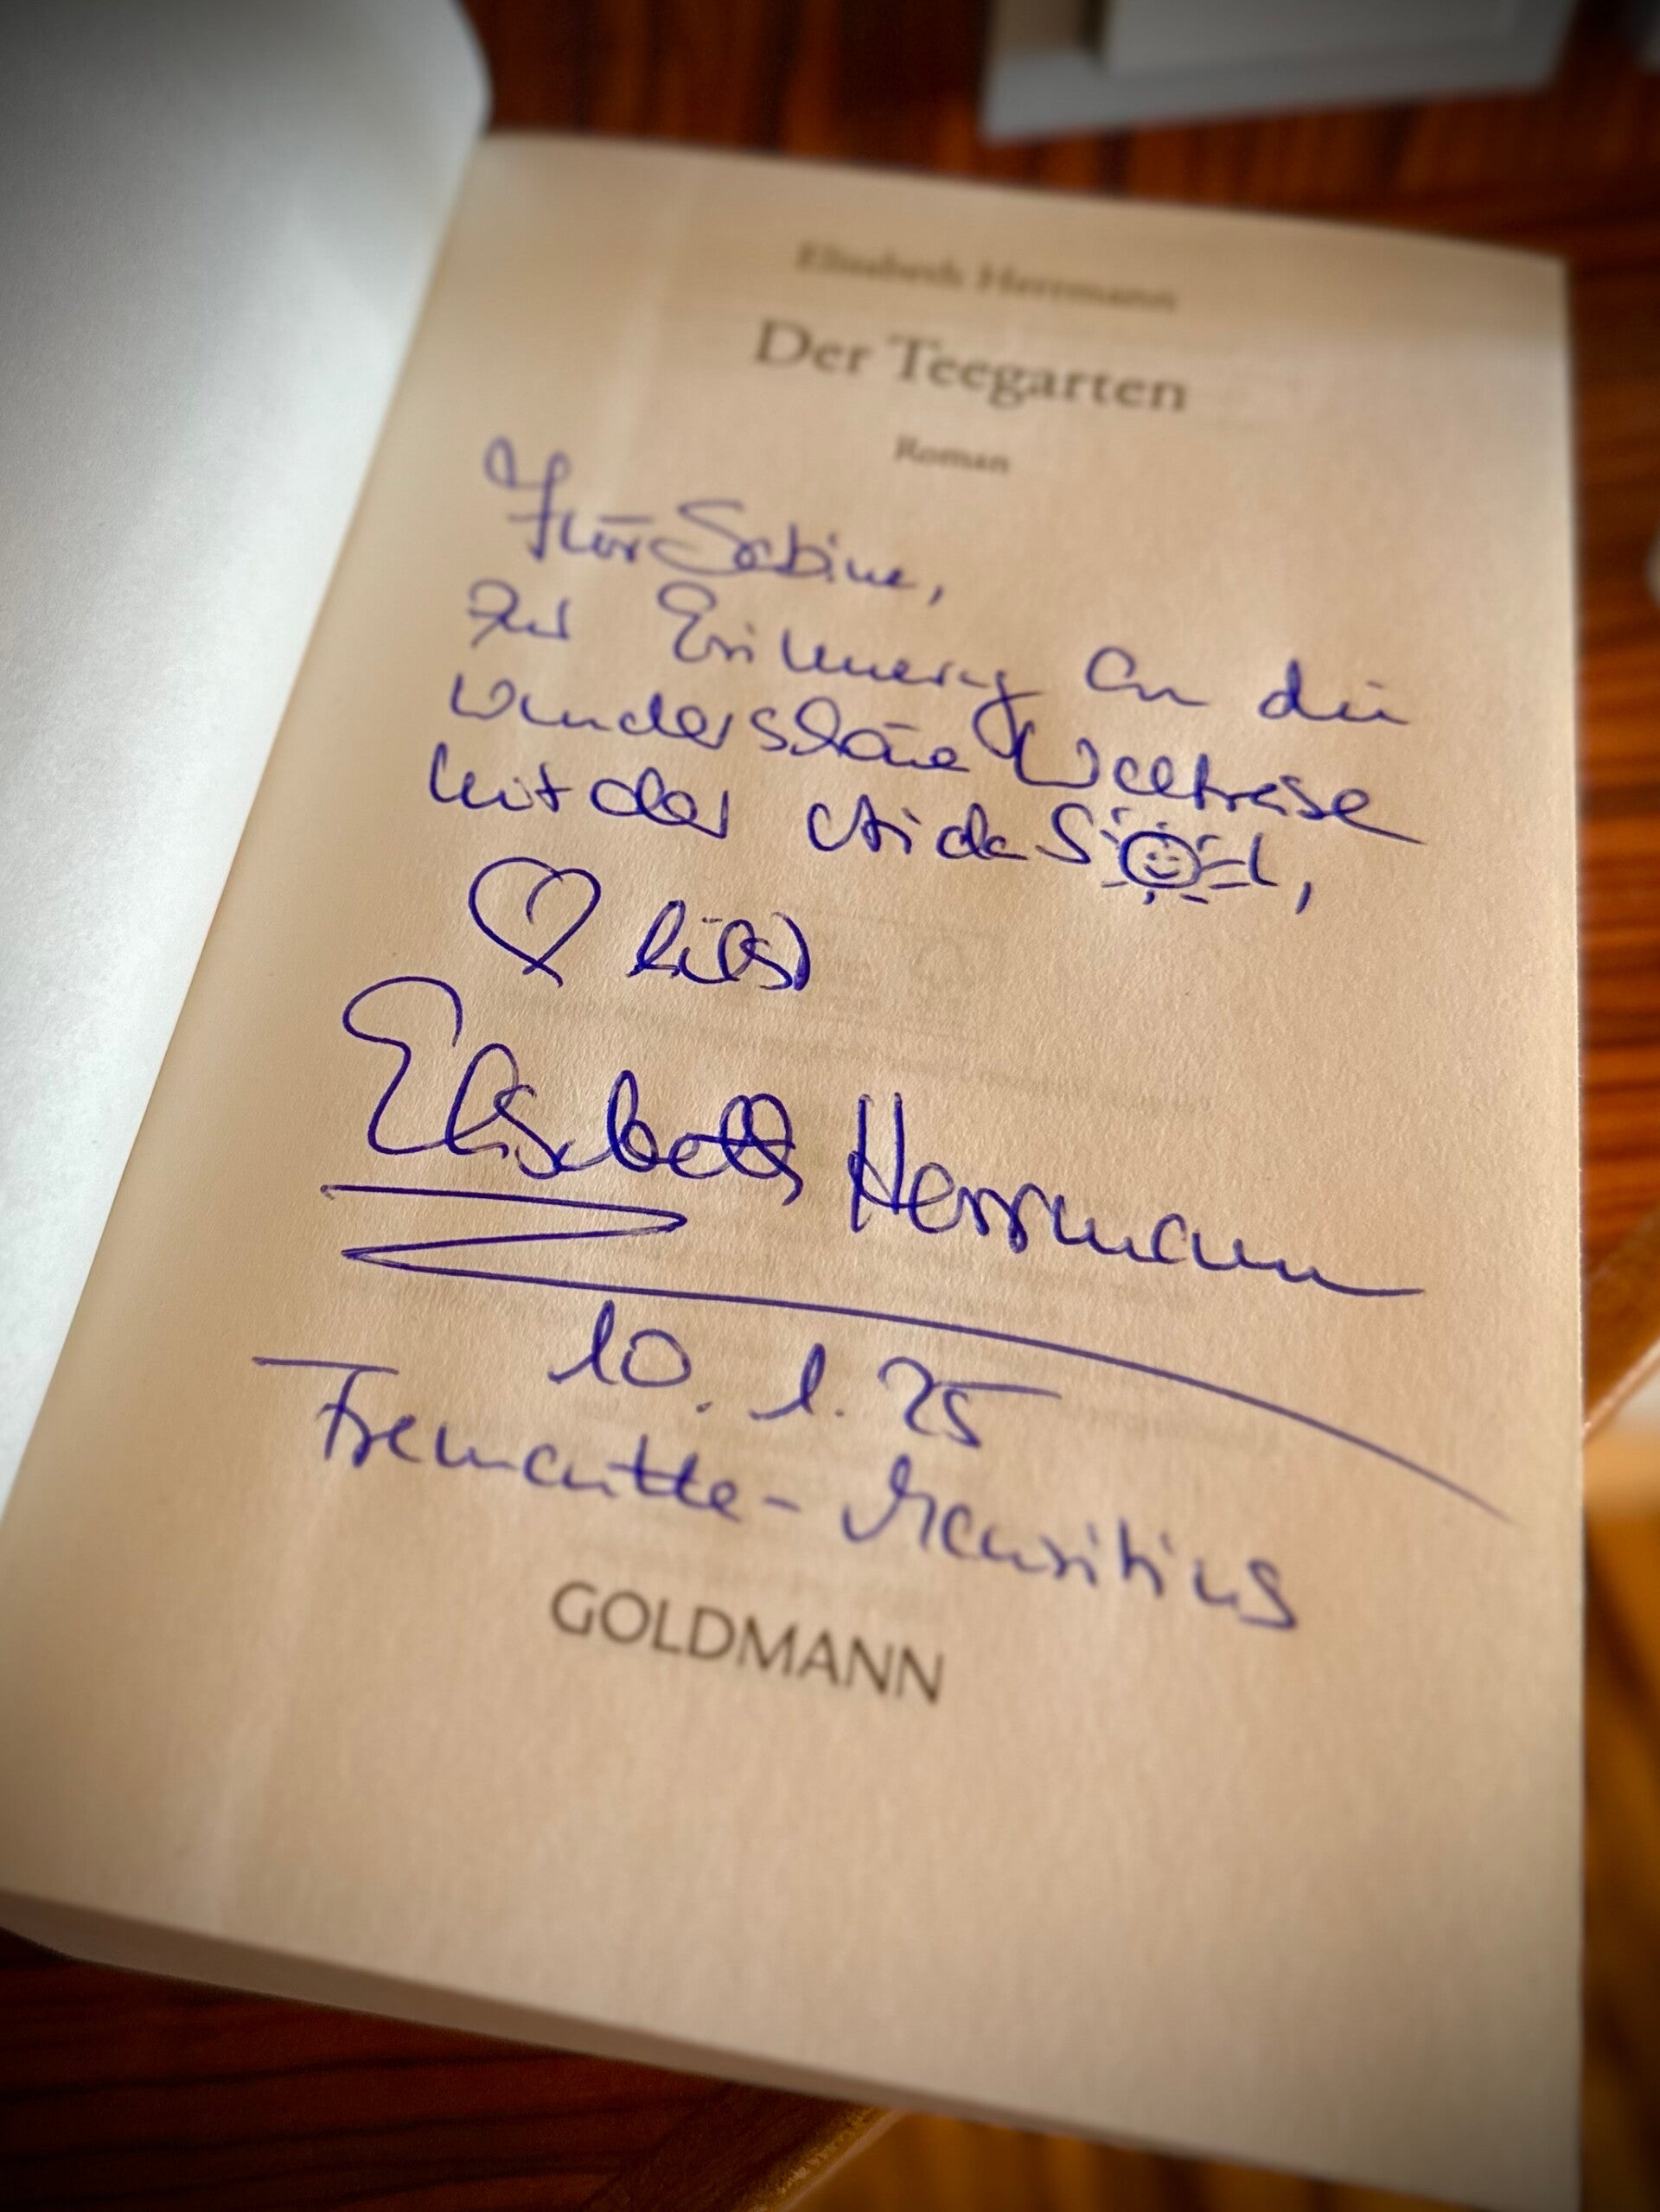 Elisabeth Herrmann
Der Teegarten
Roman
Für Sabine,
zur Erinnerung an die
wunderschöne Weltreise
mit der Aida Sol,
Elisabeth Herrmann
10. 1. 25
Fremantle - Mauritius
GOLDMANN